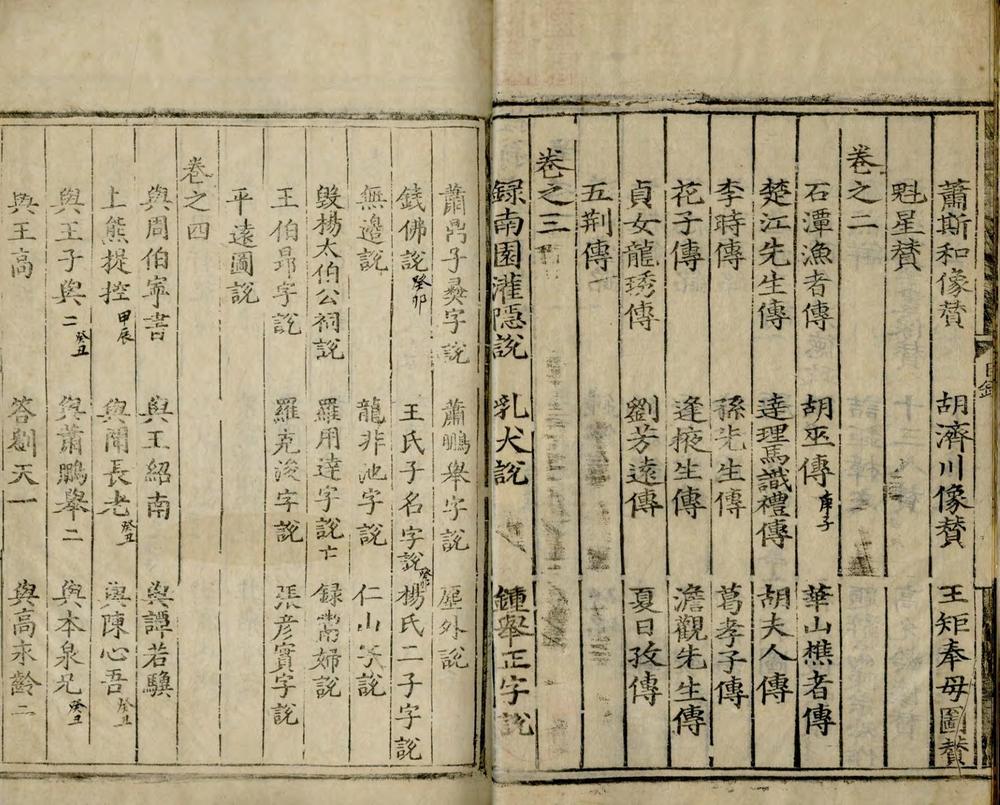 蕭斯和像贊 胡濟川像贊 王矩奉母圖贊
魁星贊
卷之二
石潭漁者傳 胡巫傳庚子 華山樵者傳
楚江先生傳 達理馬識禮傳 胡夫人傳
李時傳 孫先生傳 葛孝子傳
花子傳 逢掖生傳 澹觀先生傳
貞女龍琇傳 劉芳遠傳 夏日孜傳
五荆傳
卷之三
録南園灌隱說 乳犬說 鍾舉正字說
目録
蕭鼎子彝字說 蕭鵬舉字說 塵外說
錢佛說癸卯 王氏子名字說癸卯 楊氏二子字說
無邊說 龍非池字說 仁山說
毀楊太伯公祠說 羅用達字說亡 録喬婦說
王伯昻字說 羅克浚字說 張彦實字說
平遠圖說
卷之四
與周伯寧書 與王紹南 與譚若驥
上熊提控甲辰 與聞長老癸丑 與陳心吾癸丑
與王子與二癸丑 與蕭鵬舉二 與本泉兄癸丑
與王高 答劉天一 與高求齡二